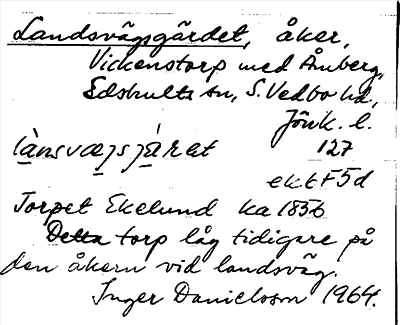 Landsvägsgärdet, åker,
Vickenstorp med Åmberg,
Edshults sn, S. Vedbo hd,
Jönk. l.
127
ekbF5d
Torpet Ekelund ka 1856
Detta torp låg tidigare på
den åkern vid landsväg.
Inger Danielsson 1964.